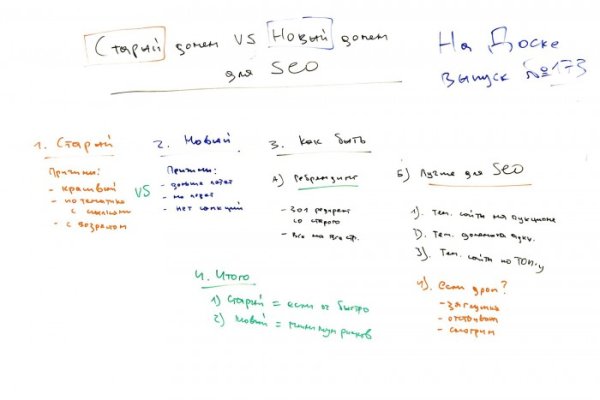 Старый домен VS Новый домен
для SEO
На Доске
выпуск №173
1. Старый
Причины:
- красивый
- по тематике
с ссылками
- с возрастом
VS
2. Новый
Причины:
- дольше
- не
- нет санкций
3. Как быть
А) Ребрендинг
- 301 редирект
со старого
- Все на все стр.
Б) Лучше для SEO
1). Тем. сайты на аукционе
2). Тем. домены аукц.
3). Тем. сайты по ТОП-у
4). если дроп?
- загрузить
- отстоять
- смотрим
4. Итого
1) Старый = если от быстро
2) Новый = минимум рисков